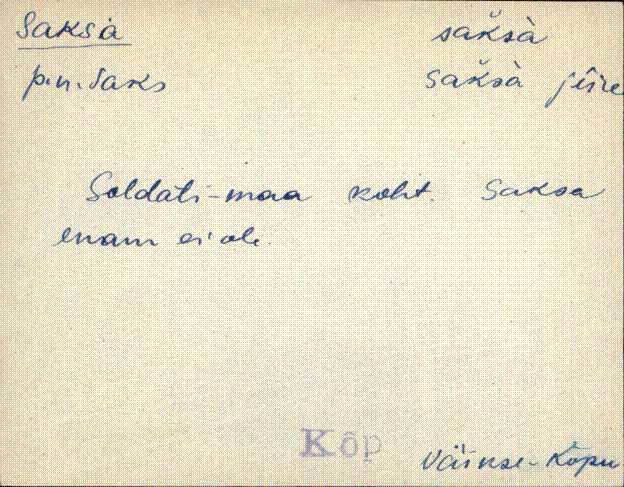 Saksa sak̆sà
p.n. Saks sak̆sà jêire
Soldati-maa koht. Saksa
enam ei ole.
Kõp Väikse-Kõpu